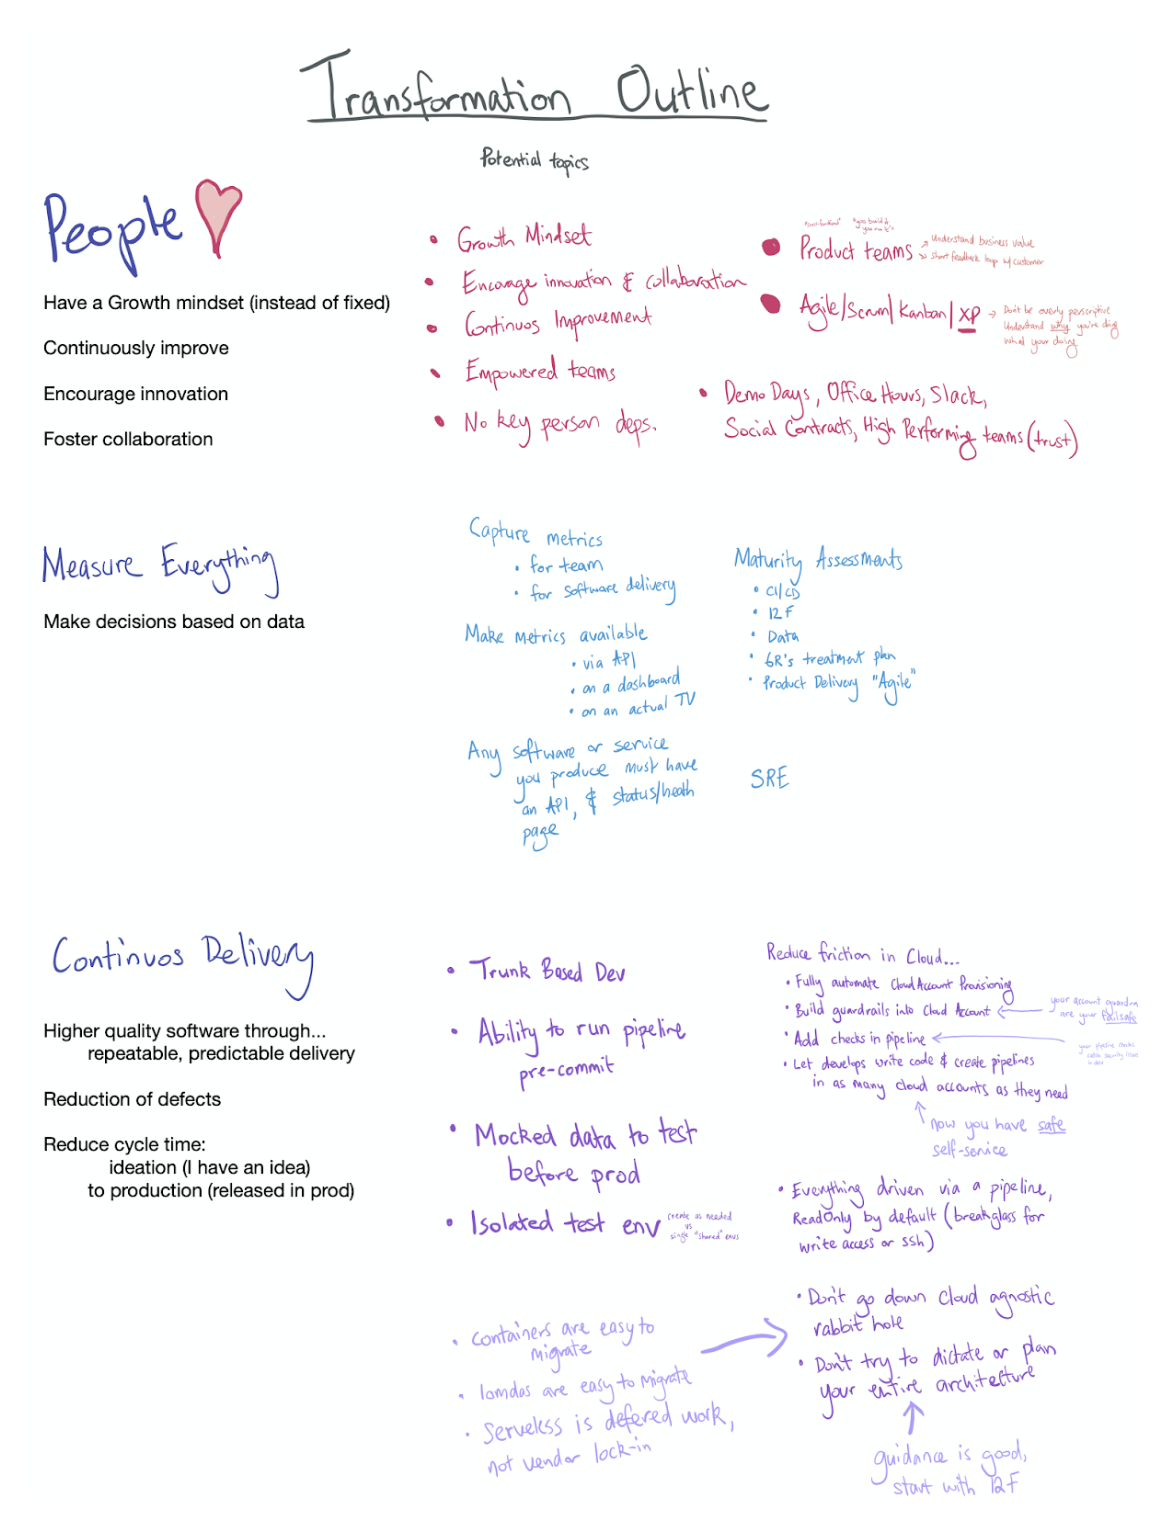 Transformation Outline
Potential topics
People
Have a Growth mindset (instead of fixed)
Continuously improve
Encourage innovation
Foster collaboration
• Growth Mindset
• Encourage innovation & collaboration
• Continuos Improvement
• Empowered teams
• No key person deps.
"you build it
you run it"
• Product teams
→ Understand business value
→ short feedback loop w/ customer
• Agile/Scrum/Kanban/XP
→ Don't be overly perscriptive
Understand why you're doing
what your doing
• Demo Days, Office Hours, Slack,
Social Contracts, High Performing teams (trust)
Measure Everything
Make decisions based on data
Capture metrics
• for team
• for software delivery
Make metrics available
• via API
• on a dashboard
• on an actual TV
Any software or service
you produce must have
an API, & status/heath
page
Maturity Assessments
• CI/CD
• 12F
• Data
• 6R's treatment plan
• Product Delivery "Agile"
SRE
Continuos Delivery
Higher quality software through...
repeatable, predictable delivery
Reduction of defects
Reduce cycle time:
ideation (I have an idea)
to production (released in prod)
• Trunk Based Dev
• Ability to run pipeline
pre-commit
• Mocked data to test
before prod
• Isolated test env
create as needed
vs
single "shared" envs
• Containers are easy to
migrate
• lamdas are easy to migrate
• Serveless is defered work,
not vendor lock-in
Reduce friction in Cloud...
• Fully automate Cloud Account Provisioning
• Build guardrails into Cloud Account
your account guardrn
are your failsafe
• Add checks in pipeline
your pipeline checks
catch security issues
• Let develops write code & create pipelines
in as many cloud accounts as they need
now you have safe
self-service
• Everything driven via a pipeline,
ReadOnly by default (breakglass for
write access or ssh)
• Don't go down Cloud agnostic
rabbit hole
• Don't try to dictate or plan
your entire architecture
guidance is good,
start with 12F